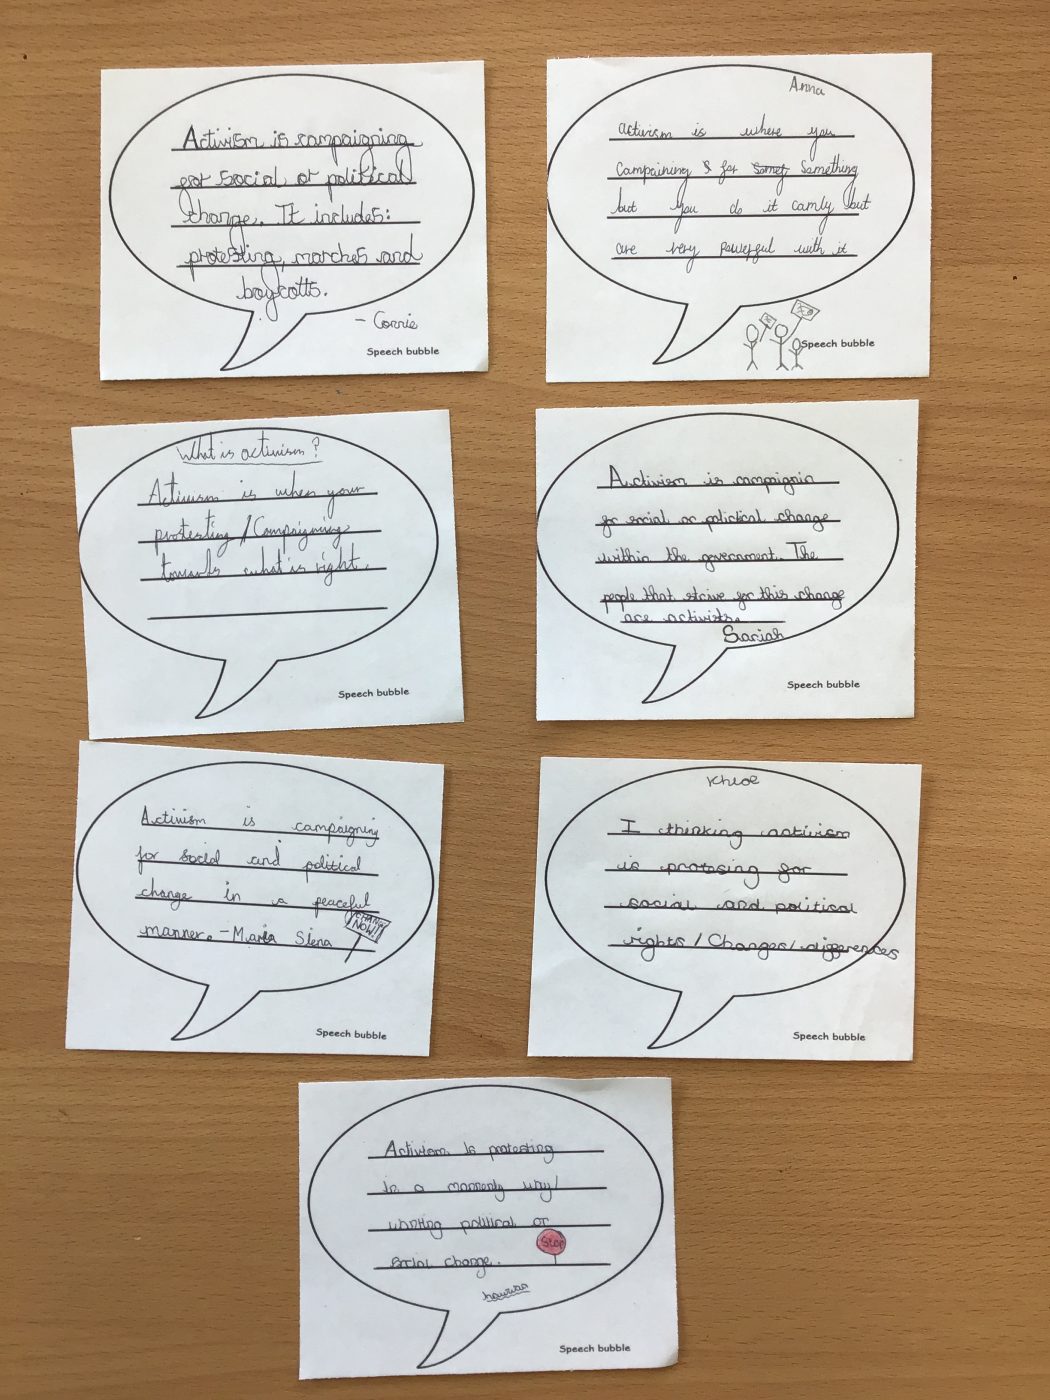 Activism is campaigning
for social or political
change. It includes:
protesting, marches and
boycotts.
- Connie
Speech bubble
Anna
activism is where you
Campaining & for Something
but you do it camly but
are very powerful with it
Speech bubble
What is activism?
Activism is when your
protesting / Campaigning
towards what is right.
Speech bubble
Activism is campaignin
for social or political change
within the government. The
people that strive for this change
are activists.
Sariah
Speech bubble
Activism is campaigning
for social and political
change in a peaceful
manner. - Maria Slena
CHANGE
NOW!
Speech bubble
Khloe
I thinking activism
is protesing for
social and political
rights / Changes / differences
Speech bubble
Activism Is protesting
In a mannerly way/
wanting political or
social change.
Stop
Speech bubble